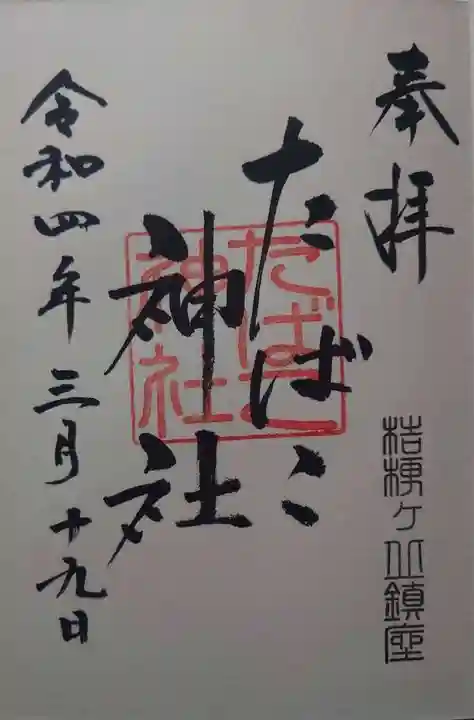 奉拝
桔梗ヶ丘鎮座
たばこ
神社
たばこ
神社
令和四年三月十九日